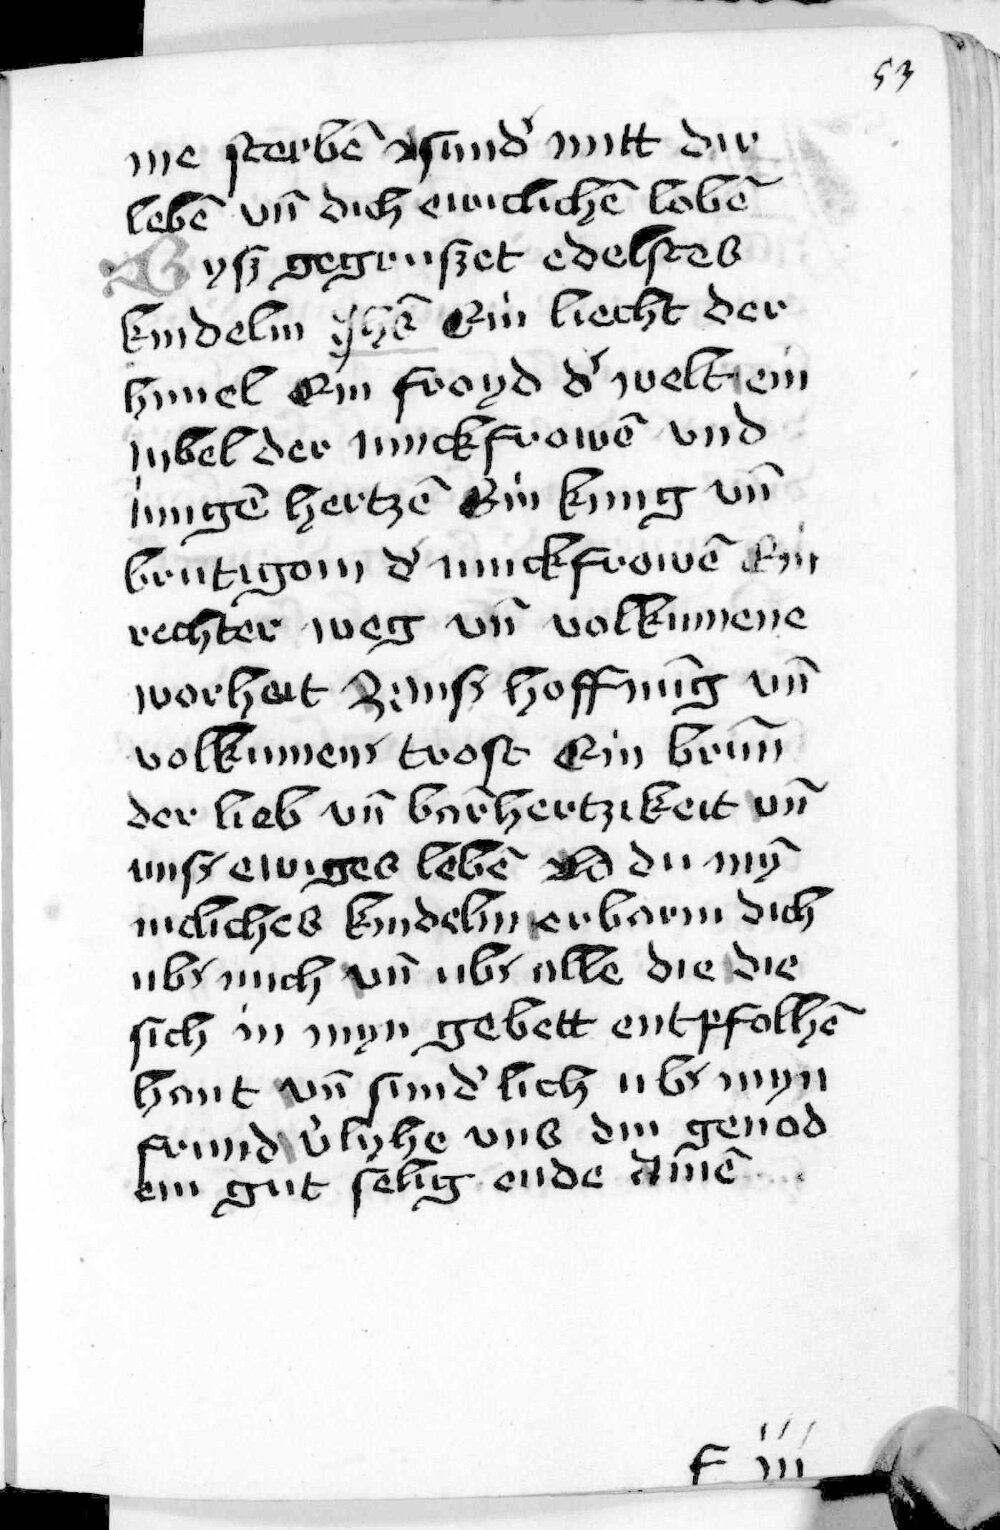 53
me sterbē sund' mitt dir
lebē vn̄ dich ewiclichē lobē
Bysz gegruszet edelstes
kindelin Jhē Ein liecht der
himel Ein froyd d' welt ein
iubel der iunckfrowē vnd
iungē hertzē Ein kung vn̄
brutigom d' iunckfrowē Ein
rechter weg vn̄ volkumene
worheit vnsz hoffnūg vn̄
volkumenr trost Ein brūn
der lieb vn̄ barm̄hertzikeit vn̄
vnsz ewiges lebē O du mȳ
nicliches kindelin erbarm dich
ubr mich vn̄ ubr alle die die
sich in myn gebett entpfolhē
hant vn̄ sund'lich ubr myn
frund v'lyhe vns din genod
ein gut selig ende Amē
F iii